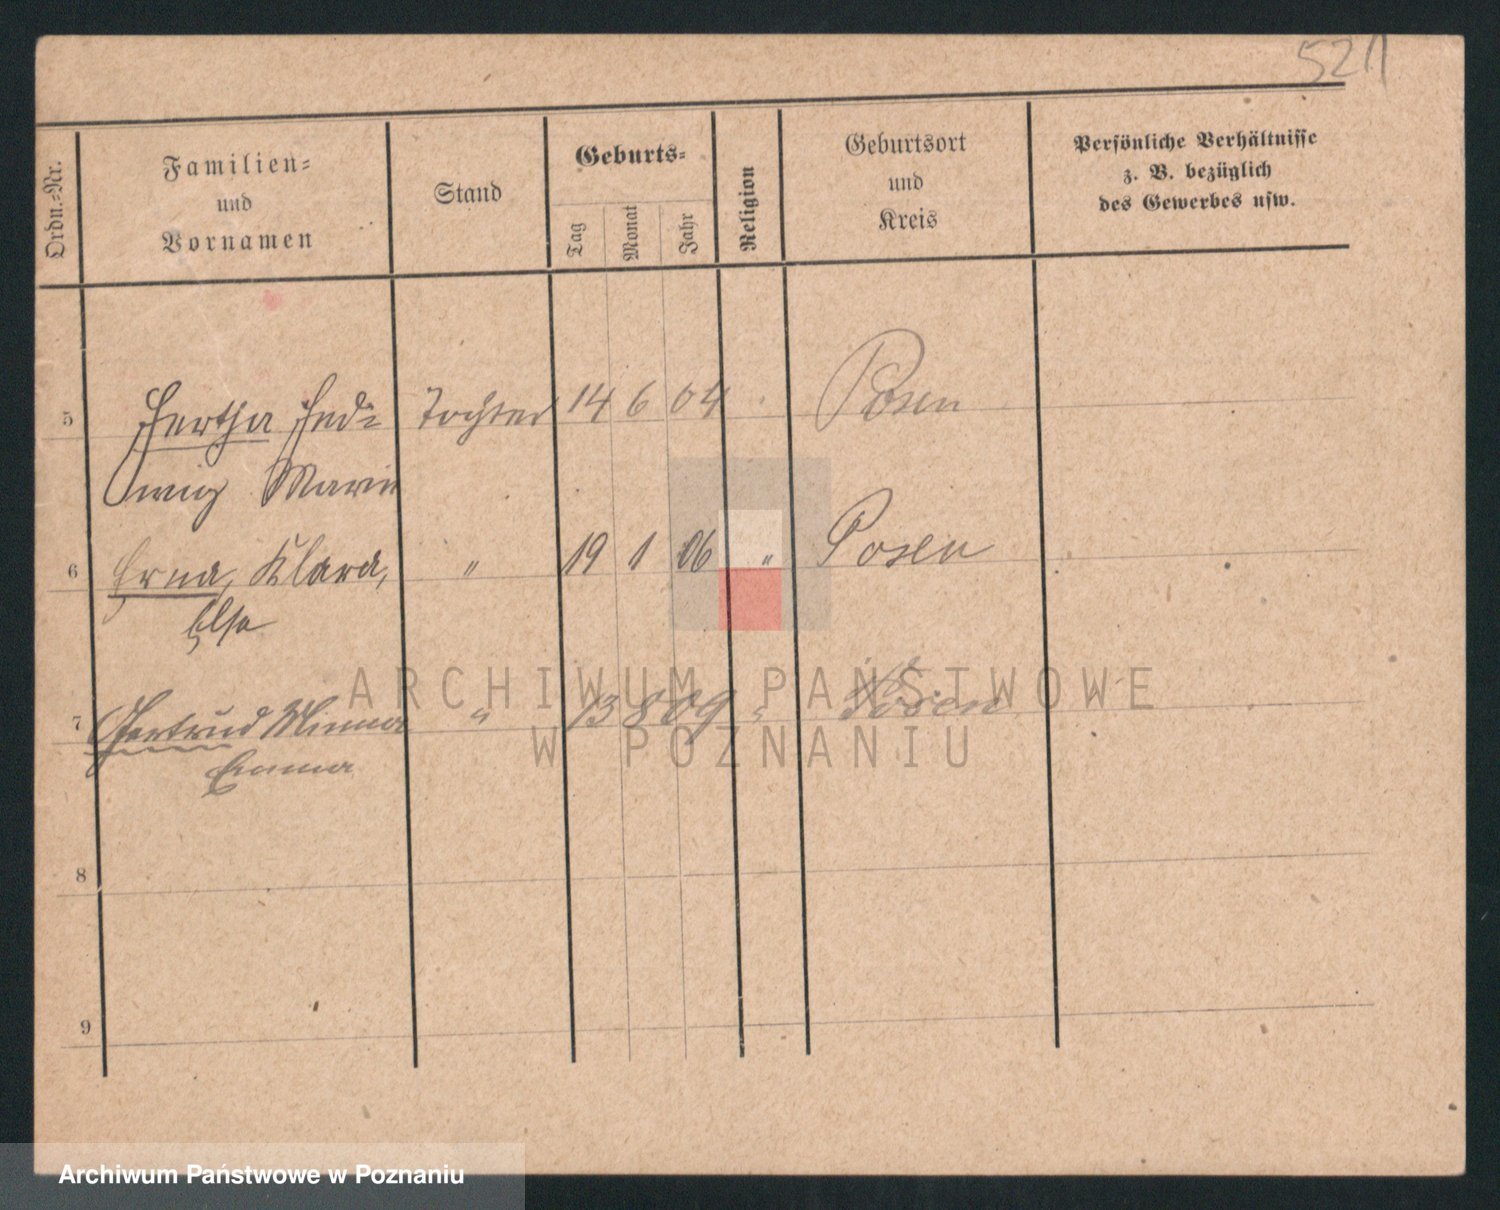 521
Ordn.-Nr.
Familien-
und
Vornamen
Stand
Geburts-
Tag
Monat
Jahr
Religion
Geburtsort
und
Kreis
Persönliche Verhältnisse
z. B. bezüglich
des Gewerbes usw.
5 Hertha Hed- Tochter 14 6 04 Posen
wig Marie
6 Erna, Klara, " 19 1 06 " Posen
Else
7 Gertrud Minna " 13 8 09 " Posen
Emma
8
9
ARCHIWUM PAŃSTWOWE
W POZNANIU
Archiwum Państwowe w Poznaniu